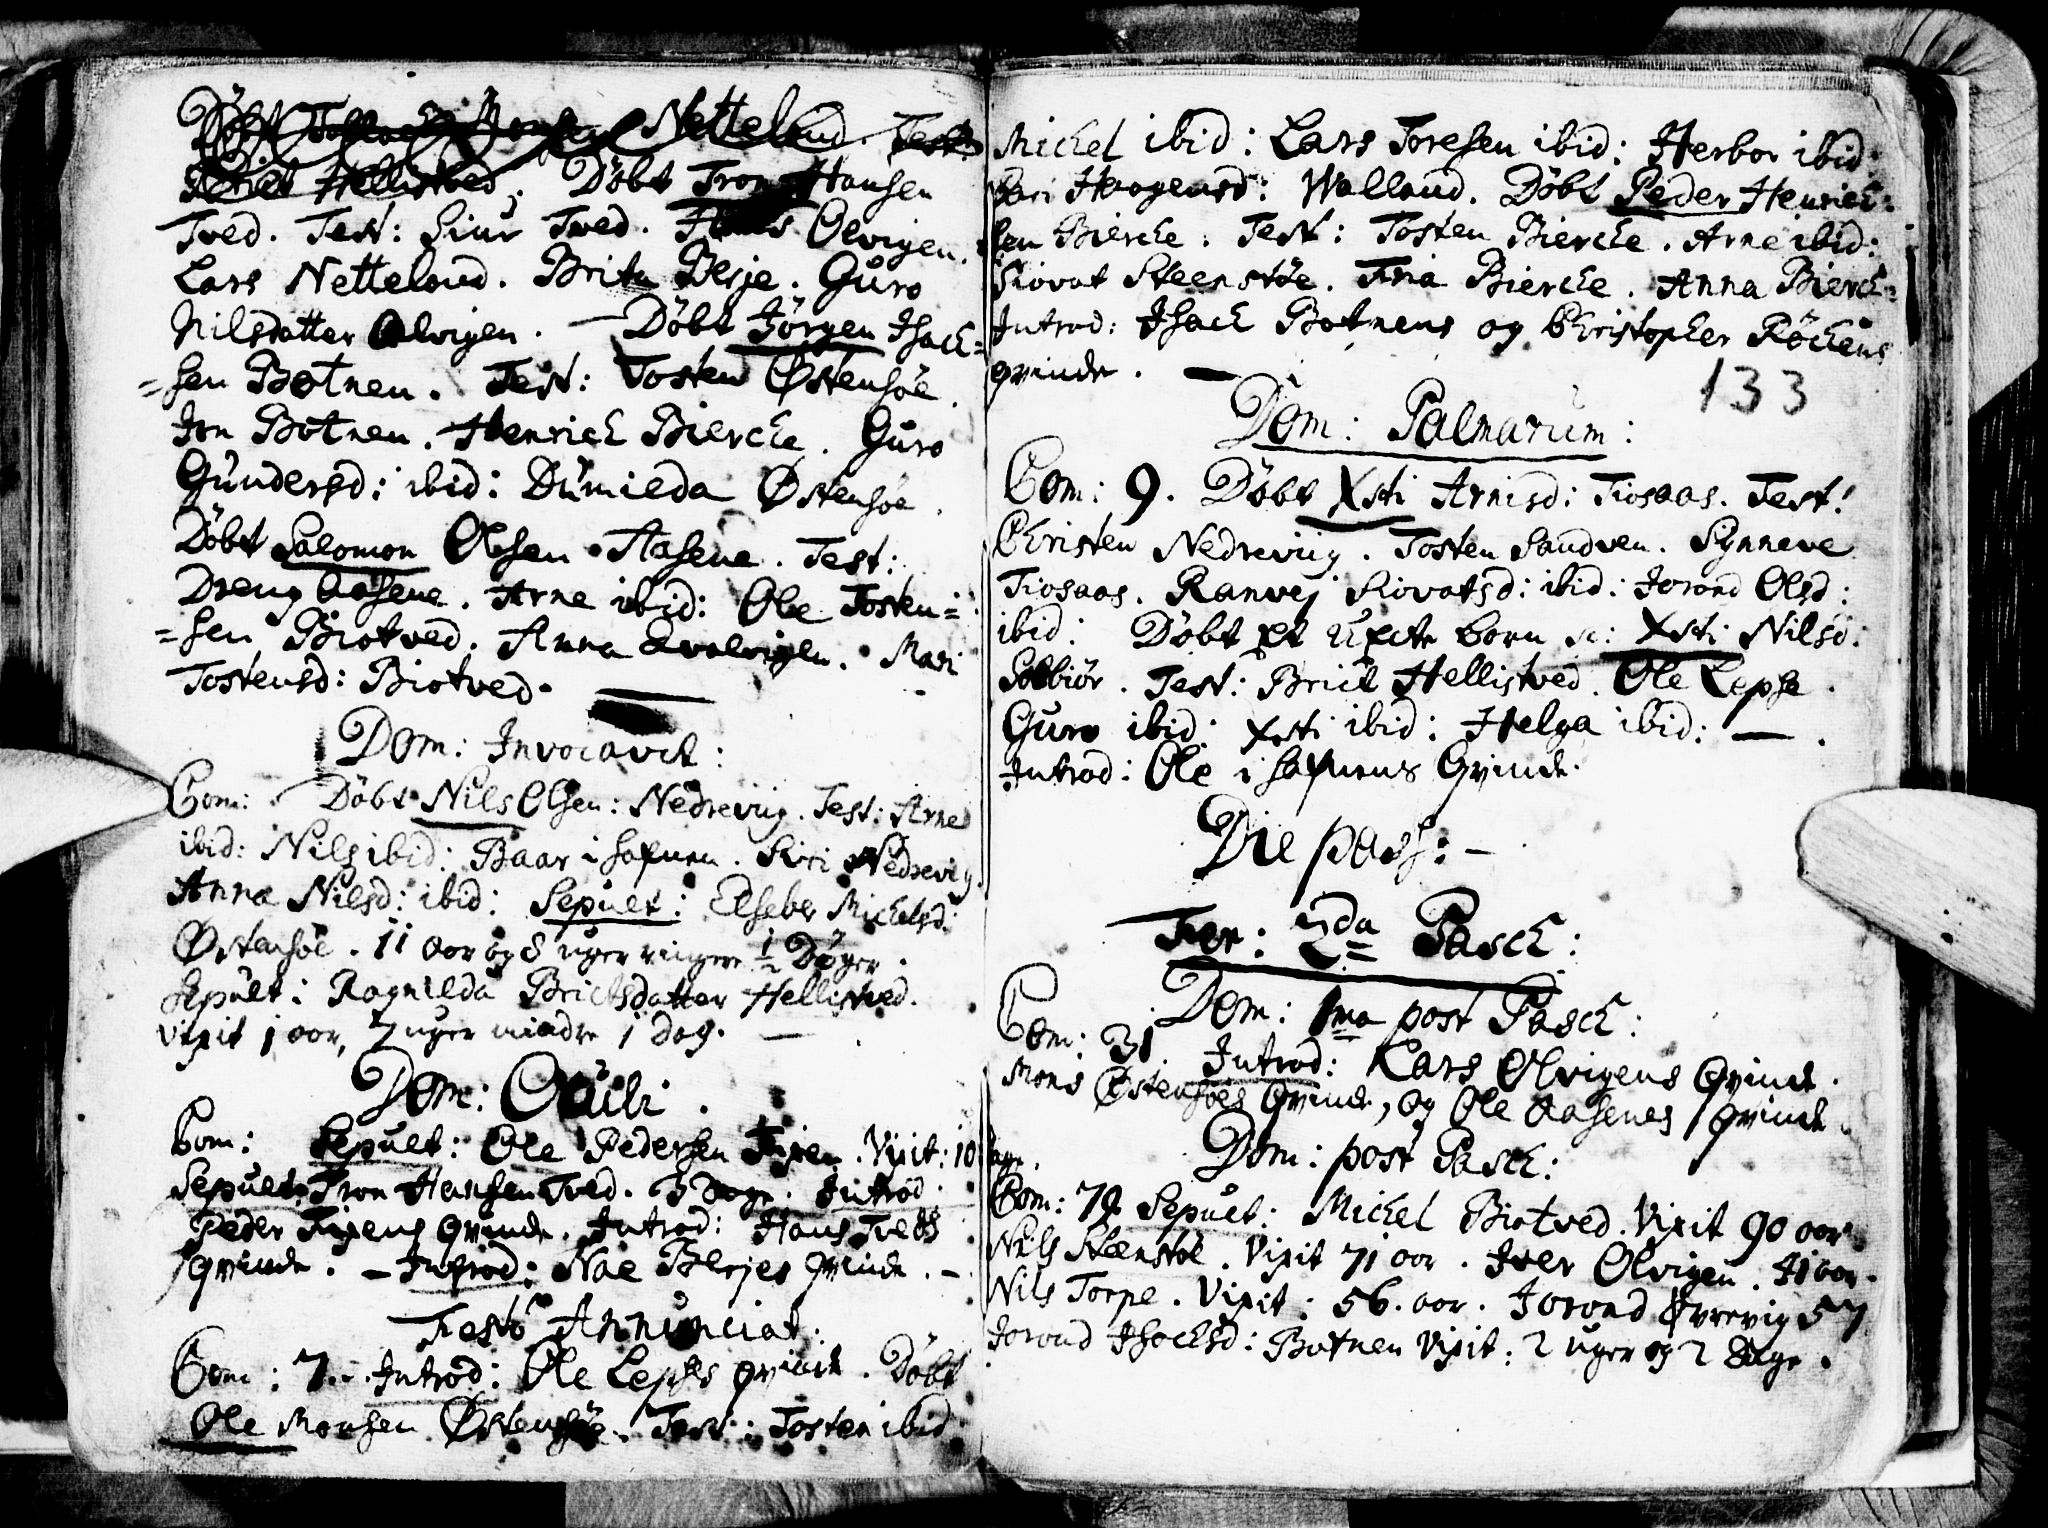 Döbt Netteland. Test:
Brict Hellistved. Döbt Tron Hansen
Tved. Test: Siur Tved. Olvigen.
Lars Netteland. Brita Berje. Guro
Nilsdatter Olvigen. — Döbt Jörgen Isach=
=sen Botnen. Test: Tosten Østensöe.
Jon Botnen. Henrich Biercke. Guro
Gundersd: ibid: Dumilda Østensöe.
Döbt Salomon Olsen Aasene. Test:
Dreng Aasene. Arne ibid: Ole Tosten=
=sen Biotved. Anna Qvalvigen. Mari
Tostensd: Biotved.
Dom: Invocavit:
Com: Döbt Nils Olsen: Nedreviig. Test: Arne
ibid: Nils ibid: Baar i hafnen. Siri Nedrevig.
Anna Nilsd: ibid: Sepult: Elsebe Michelsd:
Østensöe. 11 aar og 8 uger ringere ½ Döger.
Sepult: Ragnilda Brictsdatter Hellistved.
vixit 1 aar, 7 uger mindre 1 dag. —
Dom: Oculi.
Com: Sepult: Ole Pedersen Fixen. Vixit: 10 dage.
Sepult: Tron Hansen Tved. 3 Dage. Introd:
Peder Fixens qvinde. Introd: Hans Tveds
qvinde. — Introd: Noe Berjes qvinde. —
Festo Annunciat:
Com: 7. Introd: Ole Lepses qvinde. Döbt
Ole Monsen Østensöe. Test: Tosten ibid
Michel ibid: Lars Toresen ibid: Herbor ibid:
Mari Haagensd: Walland. Döbt Peder Henrich=
sen Biercke. Test: Tosten Biercke. Arne ibid:
Siovat Steenstöe. Biercke. Anna Bierck=
Introd: Isach Botnens og Christopher Röckens
qvinde. —
133
Dom: Palmarum:
Com: 9. Döbt Xsti Arnisd: Tiosaas. Test:
Christen Nedreviig. Tosten Sandven. Synneve
Tiosaas. Ranvej Siovatsd: ibid: Jorond Olsd:
ibid: Döbt et uecte born n: Xsti Nilsd:
Solbiör. Test: Brict Hellistved. Ole Lepse.
Guro ibid: Xsti ibid: Helga ibid: —
Introd: Ole i hafnens Qvinde.
Die pasch: —
Fer: 2da Pasch:
Dom: 1ma post Pasch:
Com: 31. Introd: Lars Olvigens Qvinde.
Mons Østensöes Qvinde, og Ole Aasenes qvinde.
Dom: post Pasch:
Com: 79 Sepult: Michel Biotved. Vixit 90 aar.
Nils Steenstöe. Vixit 71 aar. Iver Olvigen. 71 aar.
Nils Torpe. Vixit: 56. aar. Jorond Øvrevig 57
Jorond Isachsd: Botnen Vixit: 2 uger og 2 Dage.